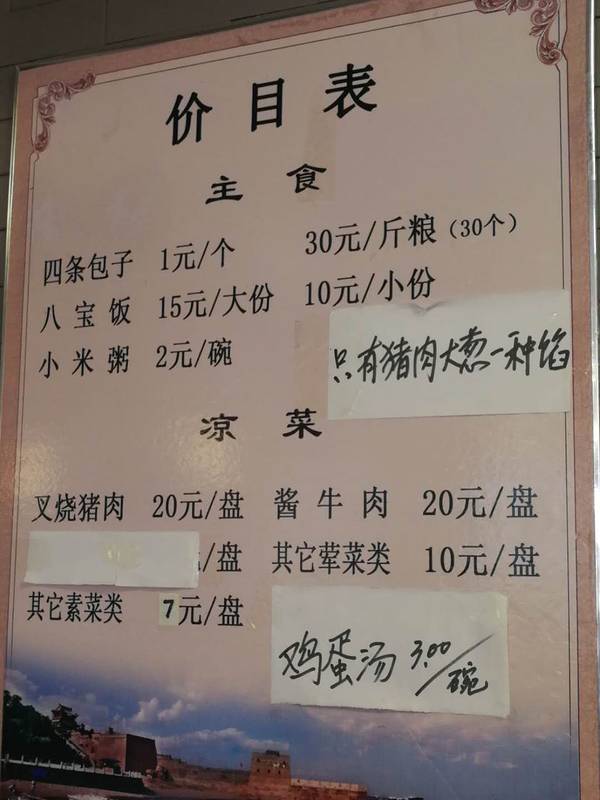 价目表
主食
四条包子 1元/个 30元/斤粮（30个）
八宝饭 15元/大份 10元/小份
小米粥 2元/碗
只有猪肉大葱一种馅
凉菜
叉烧猪肉 20元/盘 酱牛肉 20元/盘
元/盘 其它荤菜类 10元/盘
其它素菜类 7元/盘
鸡蛋汤 3.00/碗